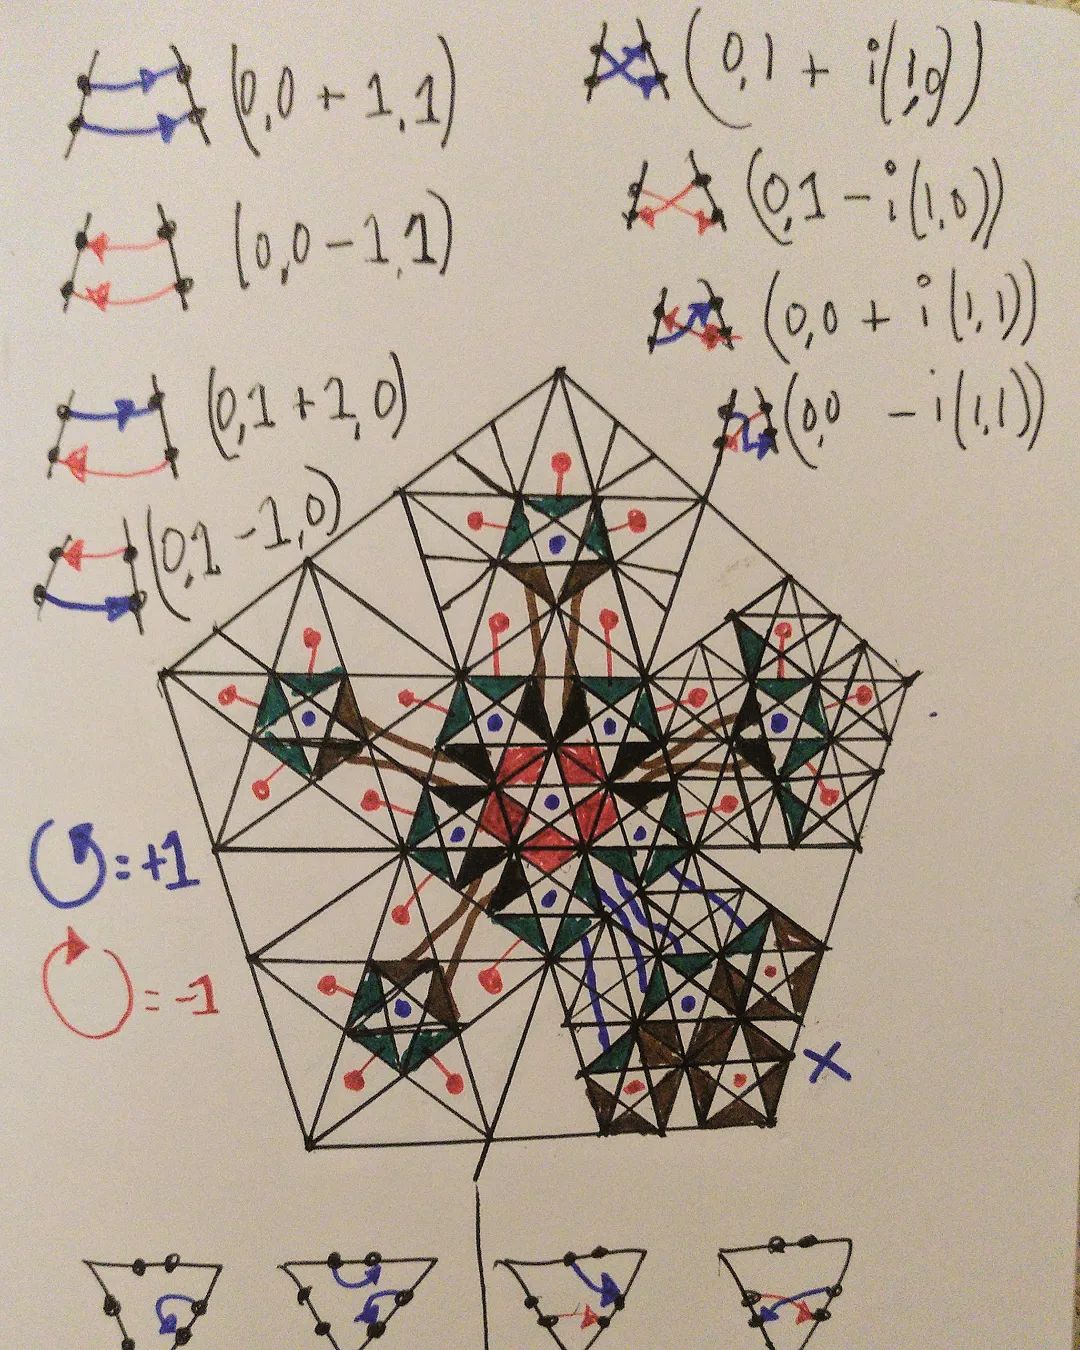 (0,0 + 1,1)
(0,0 - 1,1)
(0,1 + 1,0)
(0,1 - 1,0)
(0,1 + i(1,0))
(0,1 - i(1,0))
(0,0 + i(1,1))
(0,0 - i(1,1))
= +1
= -1
X